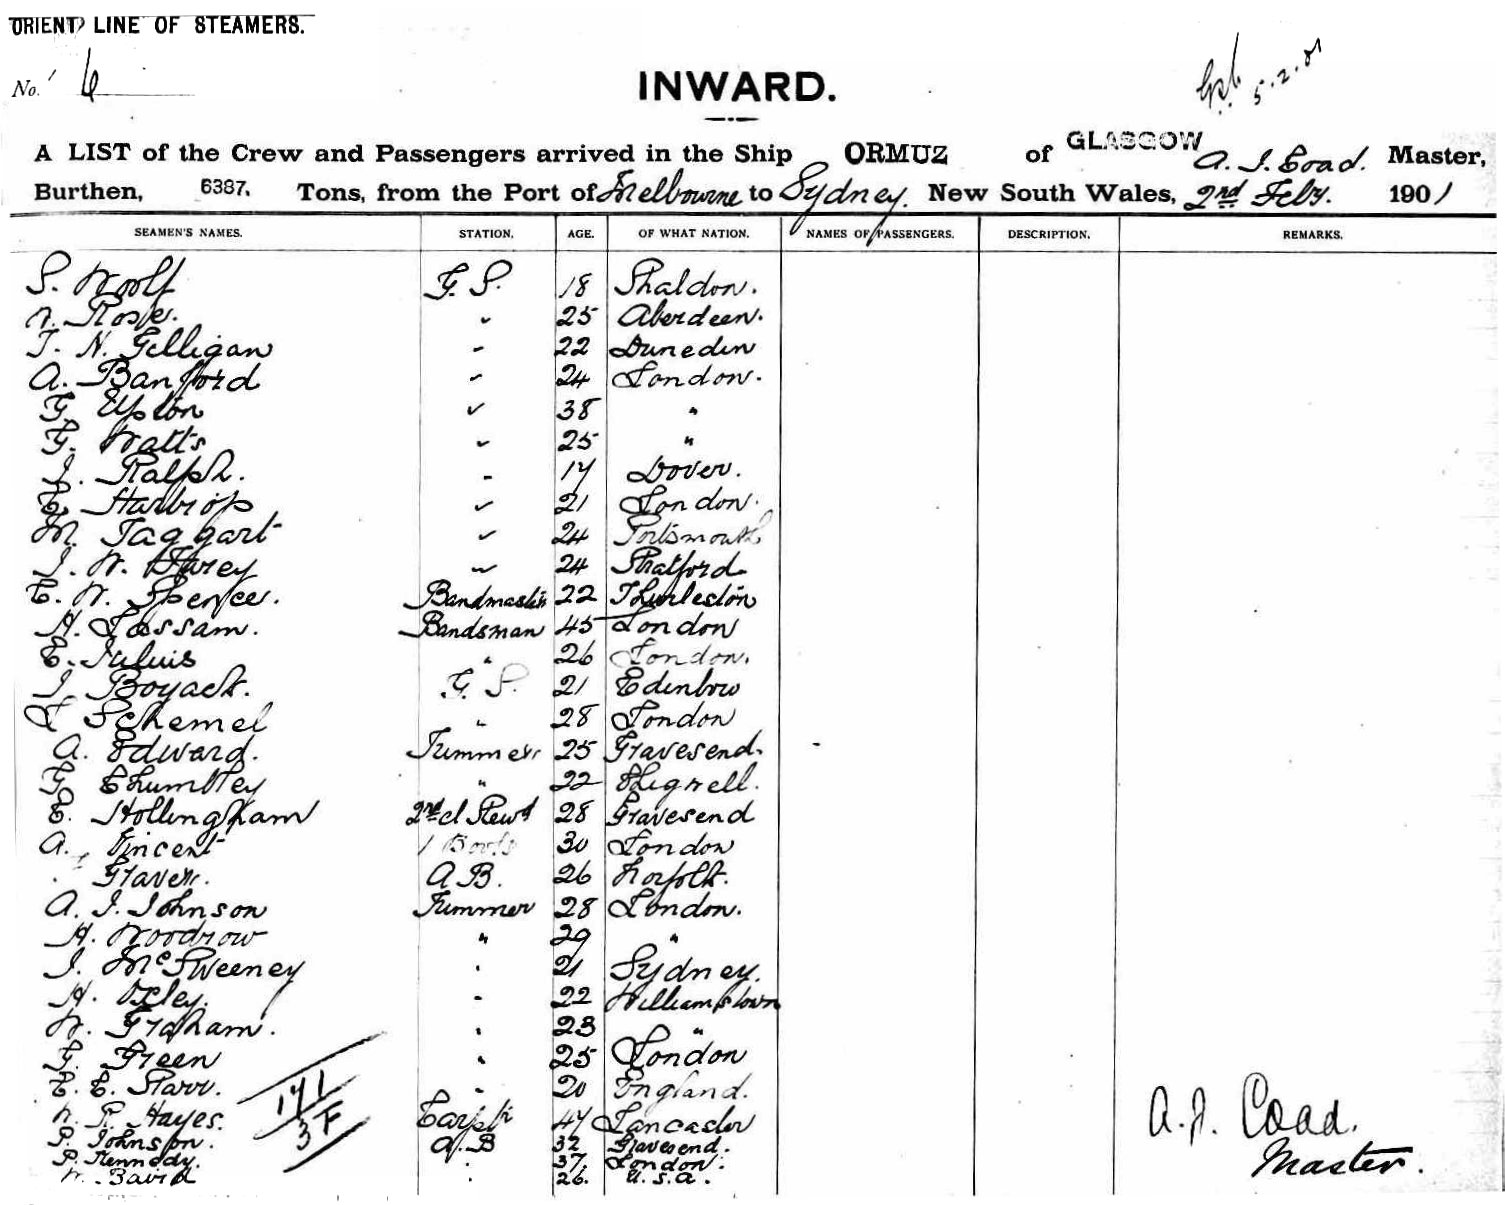 ORIENT LINE OF STEAMERS.
No. 6
INWARD.
5.2.01
A LIST of the Crew and Passengers arrived in the Ship ORMUZ of GLASGOW A. J. Coad. Master,
Burthen, 6387. Tons, from the Port of Melbourne to Sydney. New South Wales, 2nd Feby. 1901
SEAMEN'S NAMES. STATION. AGE. OF WHAT NATION. NAMES OF PASSENGERS. DESCRIPTION. REMARKS.
S. Woolf G. S. 18 Shaldon.
Rose. " 25 Aberdeen.
T. N. Gilligan " 22 Dunedin
A. Banford " 24 London.
G. Upton " 38 "
G. Watts " 25 "
J. Ralph. " 17 Dover.
E. Harbrop " 21 London.
M. Taggart " 24 Portsmouth
J. W. " 24 Stratford
E. W. Spence. Bandmaster 22 Thurleston
H. Lassam. Bandsman 45 London
E. " 26 London.
J. Boyack. G. S. 21 Edinbro
L Schemel " 28 London
A. Edward. Trimmer 25 Gravesend.
G. Chumbley " 22 Chigwell.
E. Hollingham 2nd cl Stewd 28 Gravesend
A. Vincent Boots 30 London
Graver. A.B. 26 Norfolk.
A. J. Johnson Trimmer 28 London.
H. Woodrow " 29 "
J. McSweeney " 21 Sydney.
H. Oxley. " 22 Williamstown
W. Graham. " 23 "
G. Green " 25 London
E. E. Starr. " 20 England.
W. P. Hayes. 47 Lancaster
P. Johnson. A.B 32 Gravesend.
P. Kennedy. " 37 London.
W. Baird " 26. U.S.A.
171
3F
A. J. Coad.
Master.